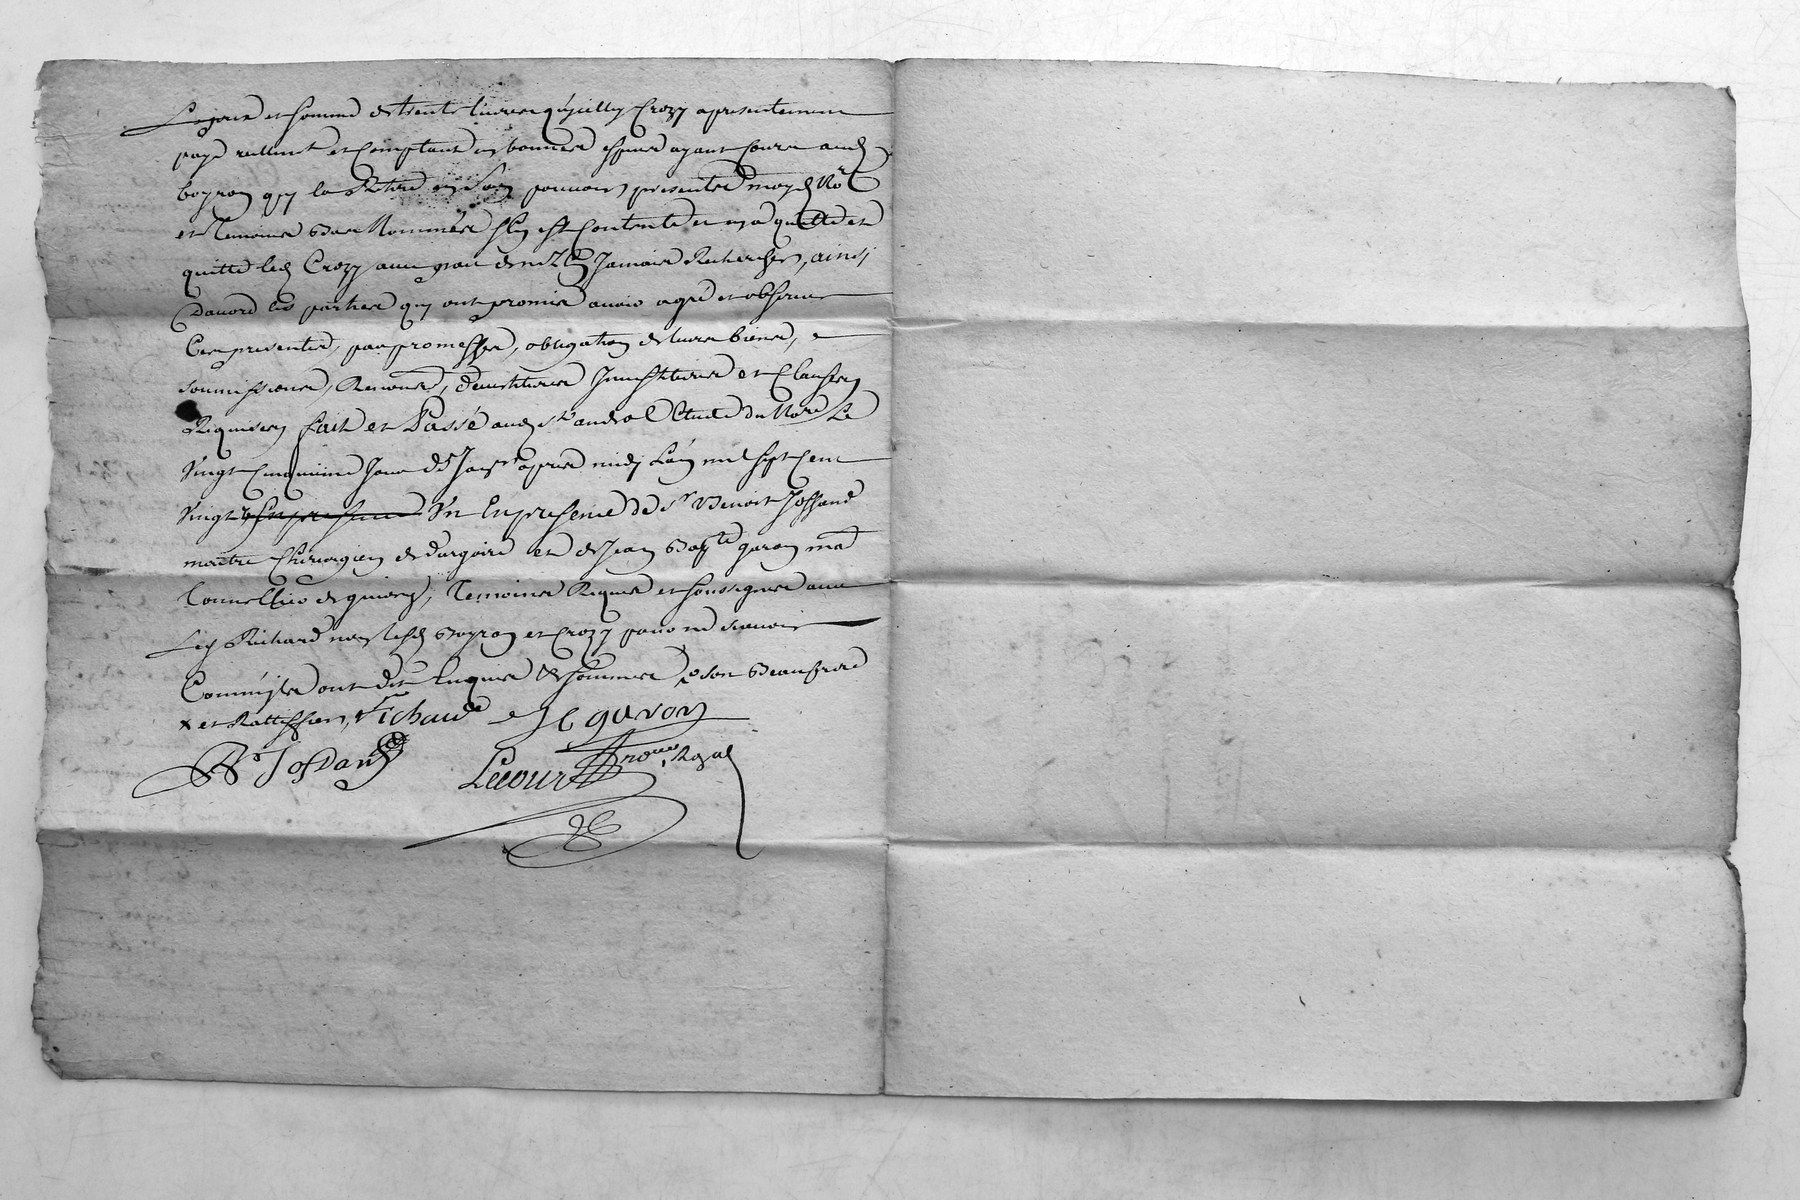 Le prix et somme de trente livres qu'iceluy Crozy a presentement
payé reellement et comptant en bonnes especes ayant cours aud
boyron quy la Retiré en son pouvoir presentes moyd No.re
et Temoins Bas Nommés s'en est Contenté en a quitté et
quitte led Crozy avec pacte de n'en Jamais Rechercher, ainsi
Daccord les parties quy ont promis avoir agré et observer
Ces presentes, par promesses, obligation de leurs biens,
soumissions, Renons, devestitures Investitures et Clauses
Requises fait et Passé aud st andeol Etude du No.re Le
Vingt Cinquieme Jour de Janv.r apres midy L'an mil sept Cent
Vingt Un En presence de s.r Benoit Joffand
maitre Chirurgien de dargoire et de Jean Bap.te garon m.d
Tonnellier de givors, Temoins Requis et soussignes avec
Led Richard non lesd Boyron et Crozy pour ne scavoir
Comm'ils ont dit Enquis et sommes, son Beaufrere
x et Rattiffien, Richard J C garon
B.t Joffand Lecourt No.re Royal